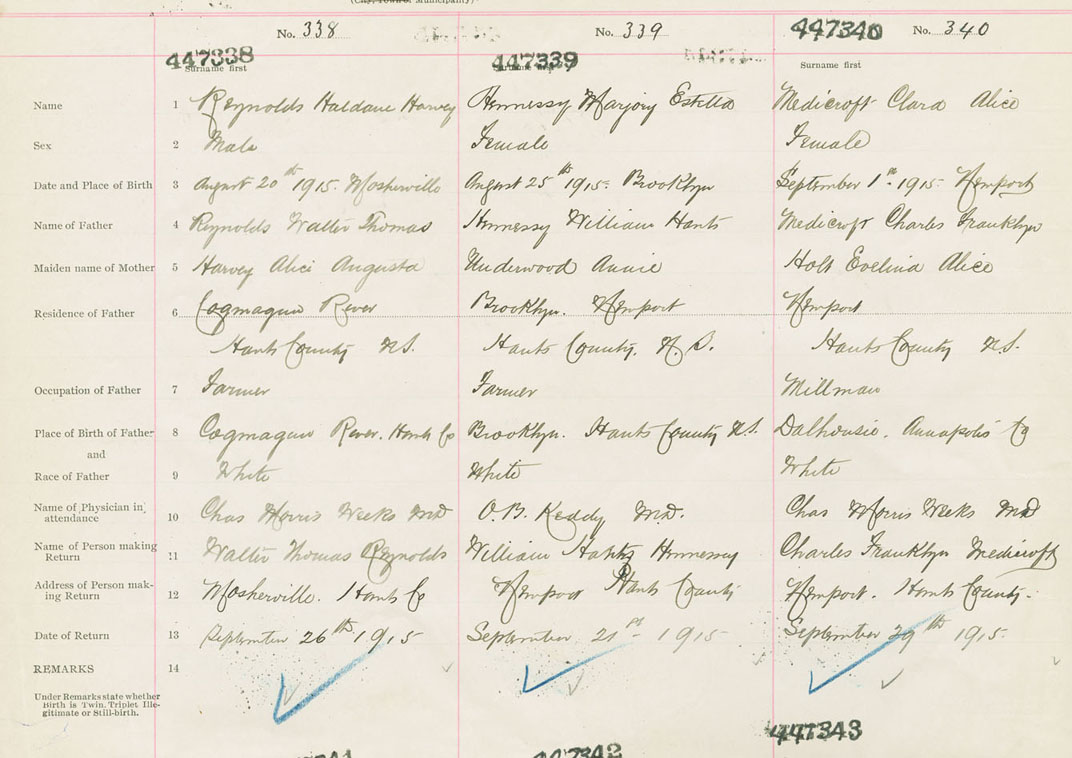 (City, Town or Municipality)
No. 338 No. 339 447340 No. 340
447338 447339
Surname first Surname first
Name 1 Reynolds Haldane Harvey Hennessy Marjory Estella Medicroft Clara Alice
Sex 2 Male Female Female
Date and Place of Birth 3 August 20th 1915. Mosherville August 25th 1915. Brooklyn September 1st 1915. Newport
Name of Father 4 Reynolds Walter Thomas Hennessy William Hants Medicroft Charles Franklyn
Maiden name of Mother 5 Harvey Alice Augusta Underwood Annie Holt Evelina Alice
Residence of Father 6 Cogmagun River Brooklyn. Newport Newport
Hants County N.S. Hants County. N. S. Hants County N.S.
Occupation of Father 7 Farmer Farmer Millman
Place of Birth of Father 8 Cogmagun River. Hants Co Brooklyn. Hants County N.S. Dalhousie. Annapolis Co
and
Race of Father 9 White White White
Name of Physician in
attendance 10 Chas Morris Weeks MD O.B. Keddy MD. Chas Morris Weeks MD
Name of Person making
Return 11 Walter Thomas Reynolds William Hennessy Charles Franklyn Medicroft
Address of Person mak-
ing Return 12 Mosherville. Hants Co Newport Hants County Newport. Hants County.
Date of Return 13 September 26th 1915 September 21st 1915 September 29th 1915.
REMARKS 14
Under Remarks state whether
Birth is Twin. Triplet Ille-
gitimate or Still-birth.
447343
447342